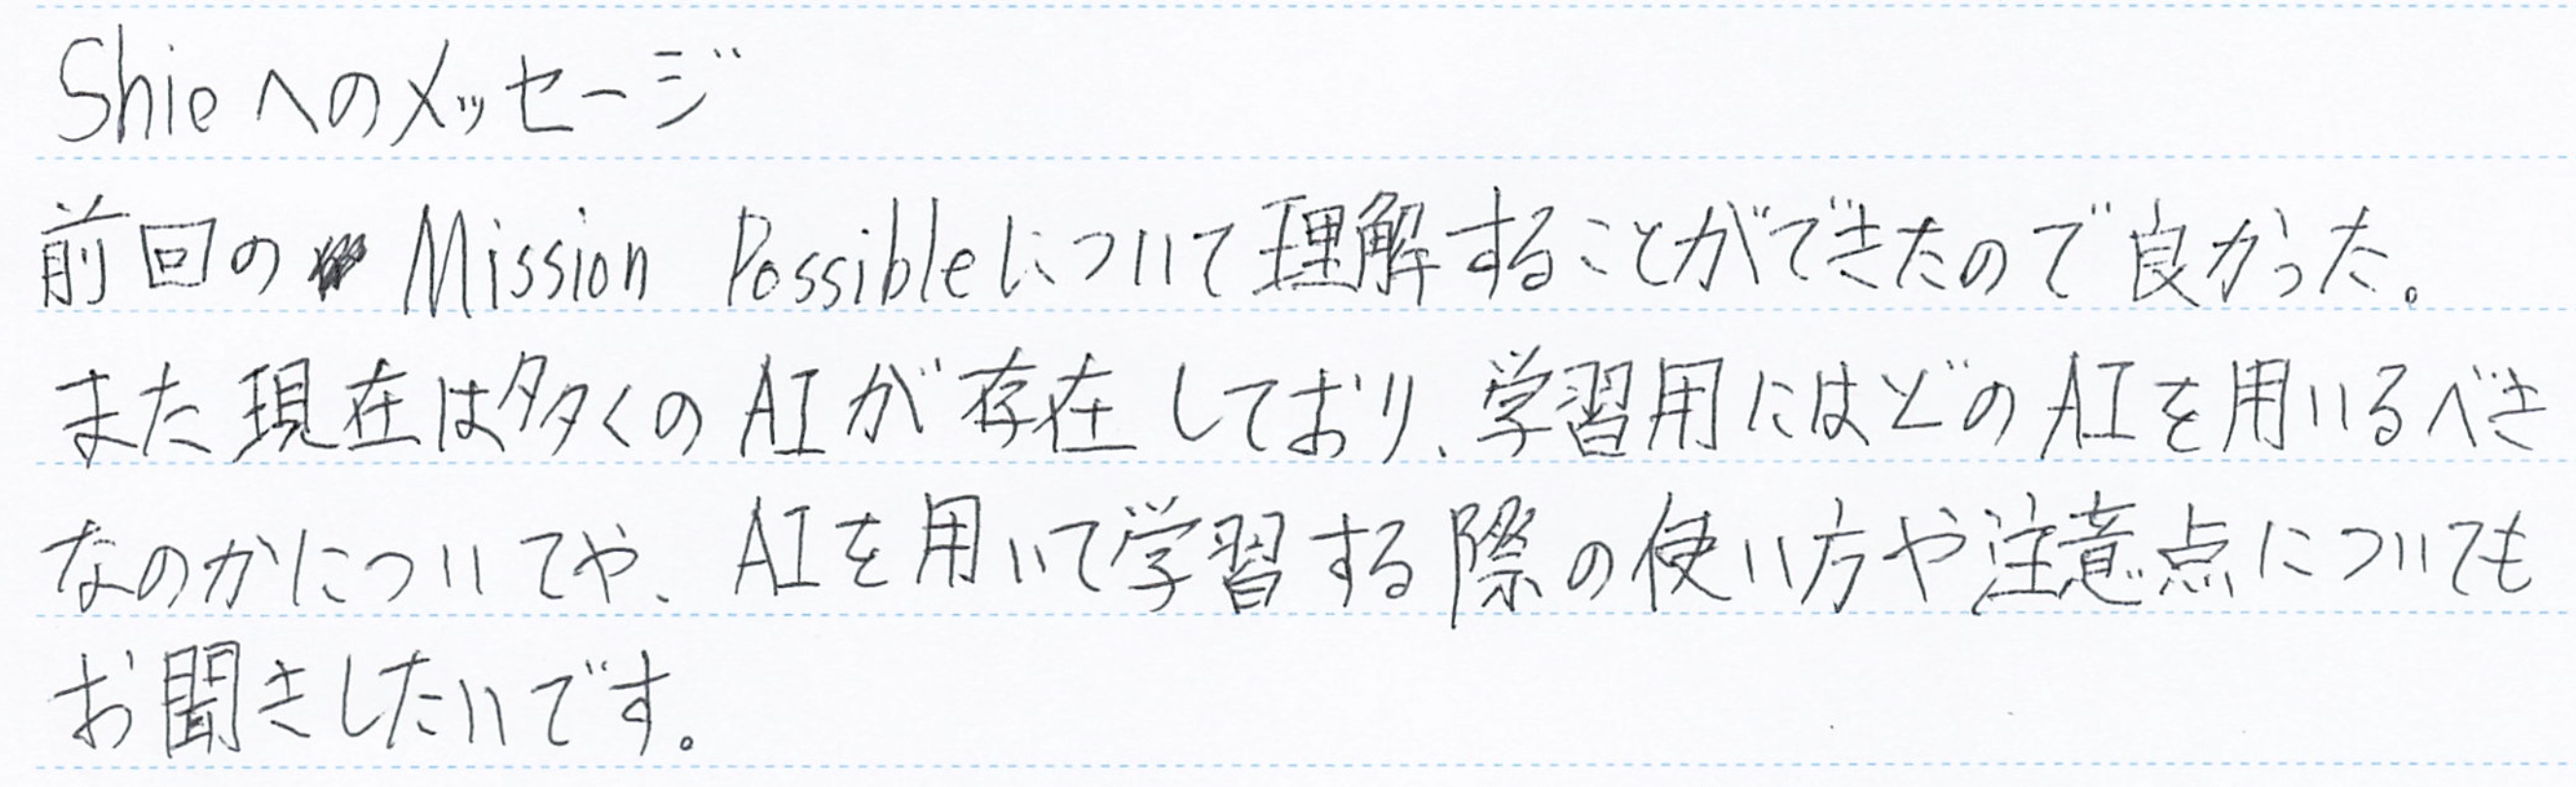 Shieへのメッセージ
前回の Mission Possibleについて理解することができたので良かった。
また現在は多くのAIが存在しており、学習用にはどのAIを用いるべき
なのかについてや、AIを用いて学習する際の使い方や注意点についても
お聞きしたいです。